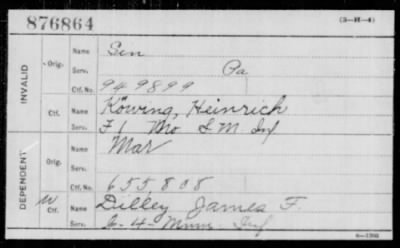 876864
(3-H-4)
INVALID
Orig.
Name Sen
Serv. Pa
Ctf. No. 949899
Ctf.
Name Köwing, Heinrich
Serv. F 1 Mo S.M. Inf
DEPENDENT
Orig.
Name Mar
Serv.
Ctf. No. 655,808
W
Ctf.
Name Dilley James F.
Serv. 4- Minn Inf